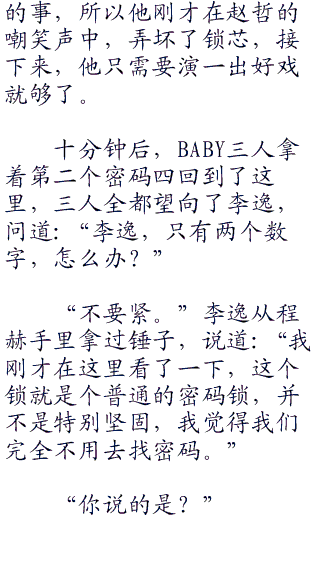 的事，所以他刚才在赵哲的
嘲笑声中，弄坏了锁芯，接
下来，他只需要演一出好戏
就够了。
十分钟后，BABY三人拿
着第二个密码四回到了这
里，三人全都望向了李逸，
问道：“李逸，只有两个数
字，怎么办？”
“不要紧。”李逸从程
赫手里拿过锤子，说道：“我
刚才在这里看了一下，这个
锁就是个普通的密码锁，并
不是特别坚固，我觉得我们
完全不用去找密码。”
“你说的是？”